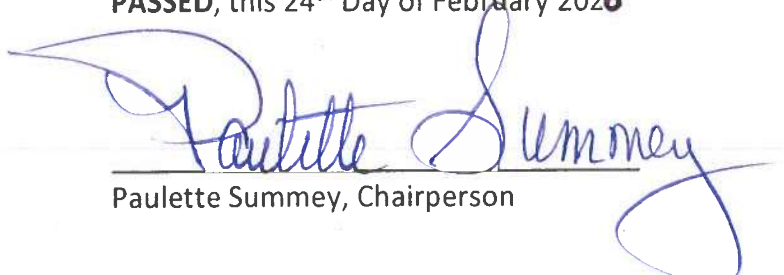 PASSED, this 24th Day of February
Paulette Summey
Paulette Summey, Chairperson